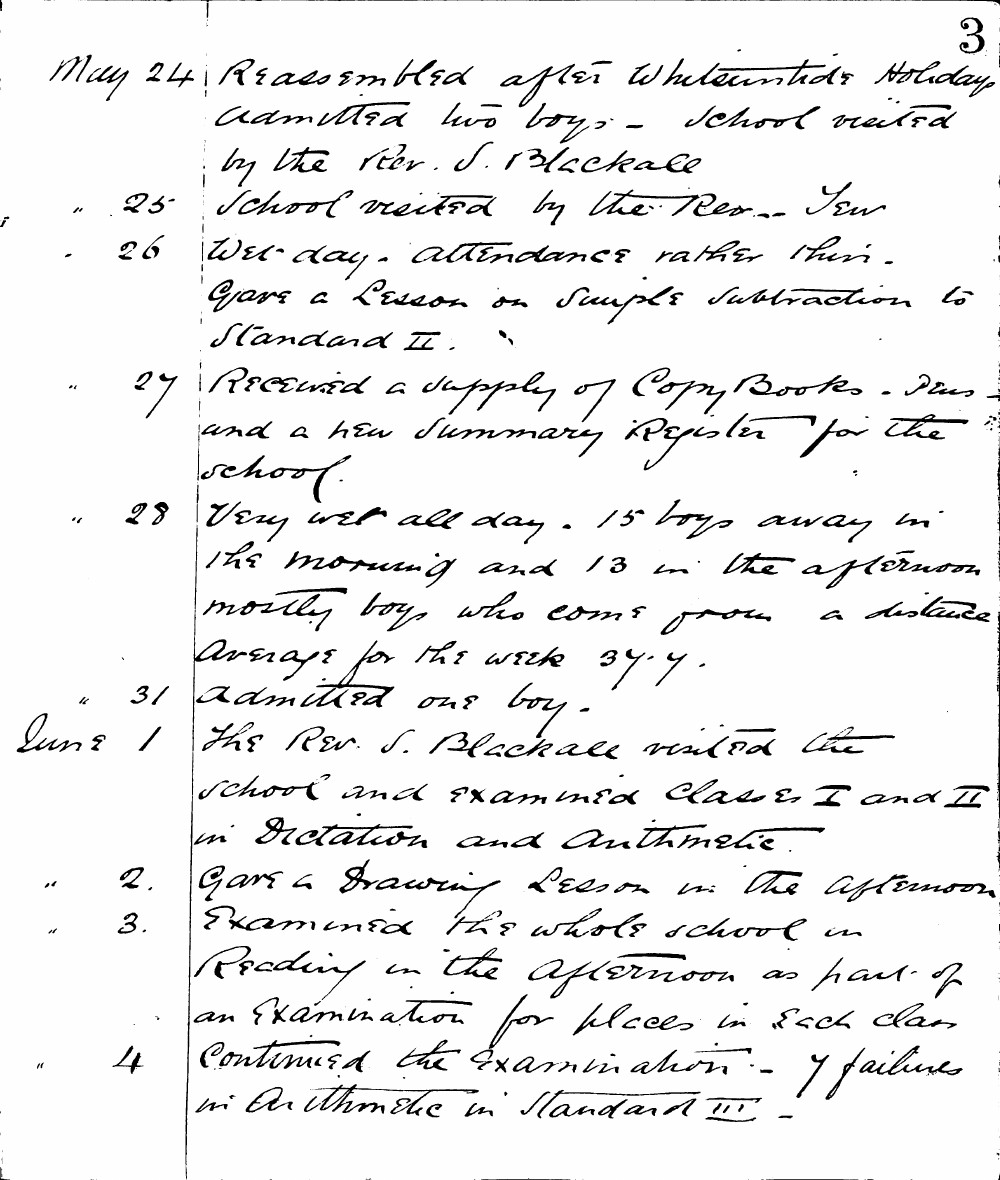 3
May 24 Reassembled after Whitsuntide Holidays
admitted two boys - School visited
by the Rev. S. Blackall
" 25 School visited by the Rev -- Tew
" 26 Wet day. Attendance rather thin.
Gave a Lesson on Simple Subtraction to
Standard II.
" 27 Received a supply of Copy Books - Pens -
and a new Summary Register for the
school.
" 28 Very wet all day. 15 boys away in
the morning and 13 in the afternoon
mostly boys who come from a distance
Average for the week 37.7.
" 31 Admitted one boy.
June 1 The Rev. S. Blackall visited the
school and examined Classes I and II
in Dictation and Arithmetic.
" 2. Gave a Drawing Lesson in the Afternoon
" 3. Examined the whole school in
Reading in the Afternoon as part of
an Examination for places in each class
" 4 Continued the Examination. - 7 failures
in Arithmetic in Standard III -